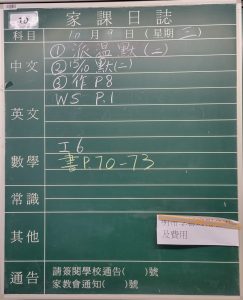 家課日誌
科目 10月9日(星期三)
中文 ①派溫默(二)
②15/10 默(二)
③作P8
WS P.1
英文
數學 I6
書P.70-73
常識
其他
及費用
通告 請簽閱學校通告( )號
家教會通知( )號